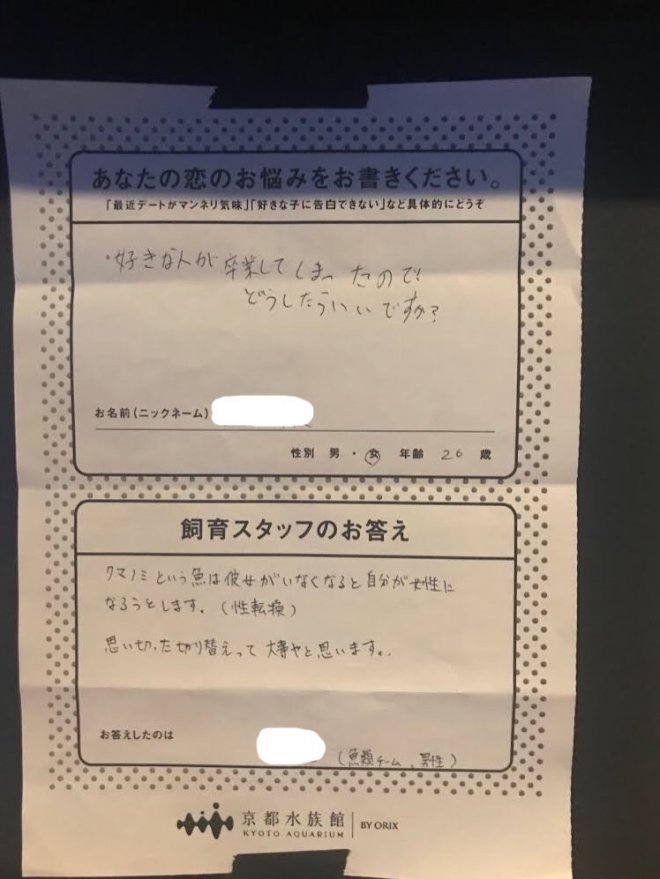 あなたの恋のお悩みをお書きください。
「最近デートがマンネリ気味」「好きな子に告白できない」など具体的にどうぞ
・好きな人が卒業してしまったので
どうしたらいいですか?
お名前(ニックネーム)
性別 男・女 年齢 20 歳
飼育スタッフのお答え
クマノミという魚は彼女がいなくなると自分が女性に
なろうとします。(性転換)
思い切った切り替えって大事やと思います。
お答えしたのは
(魚類チーム、男性)
京都水族館 BY ORIX
KYOTO AQUARIUM